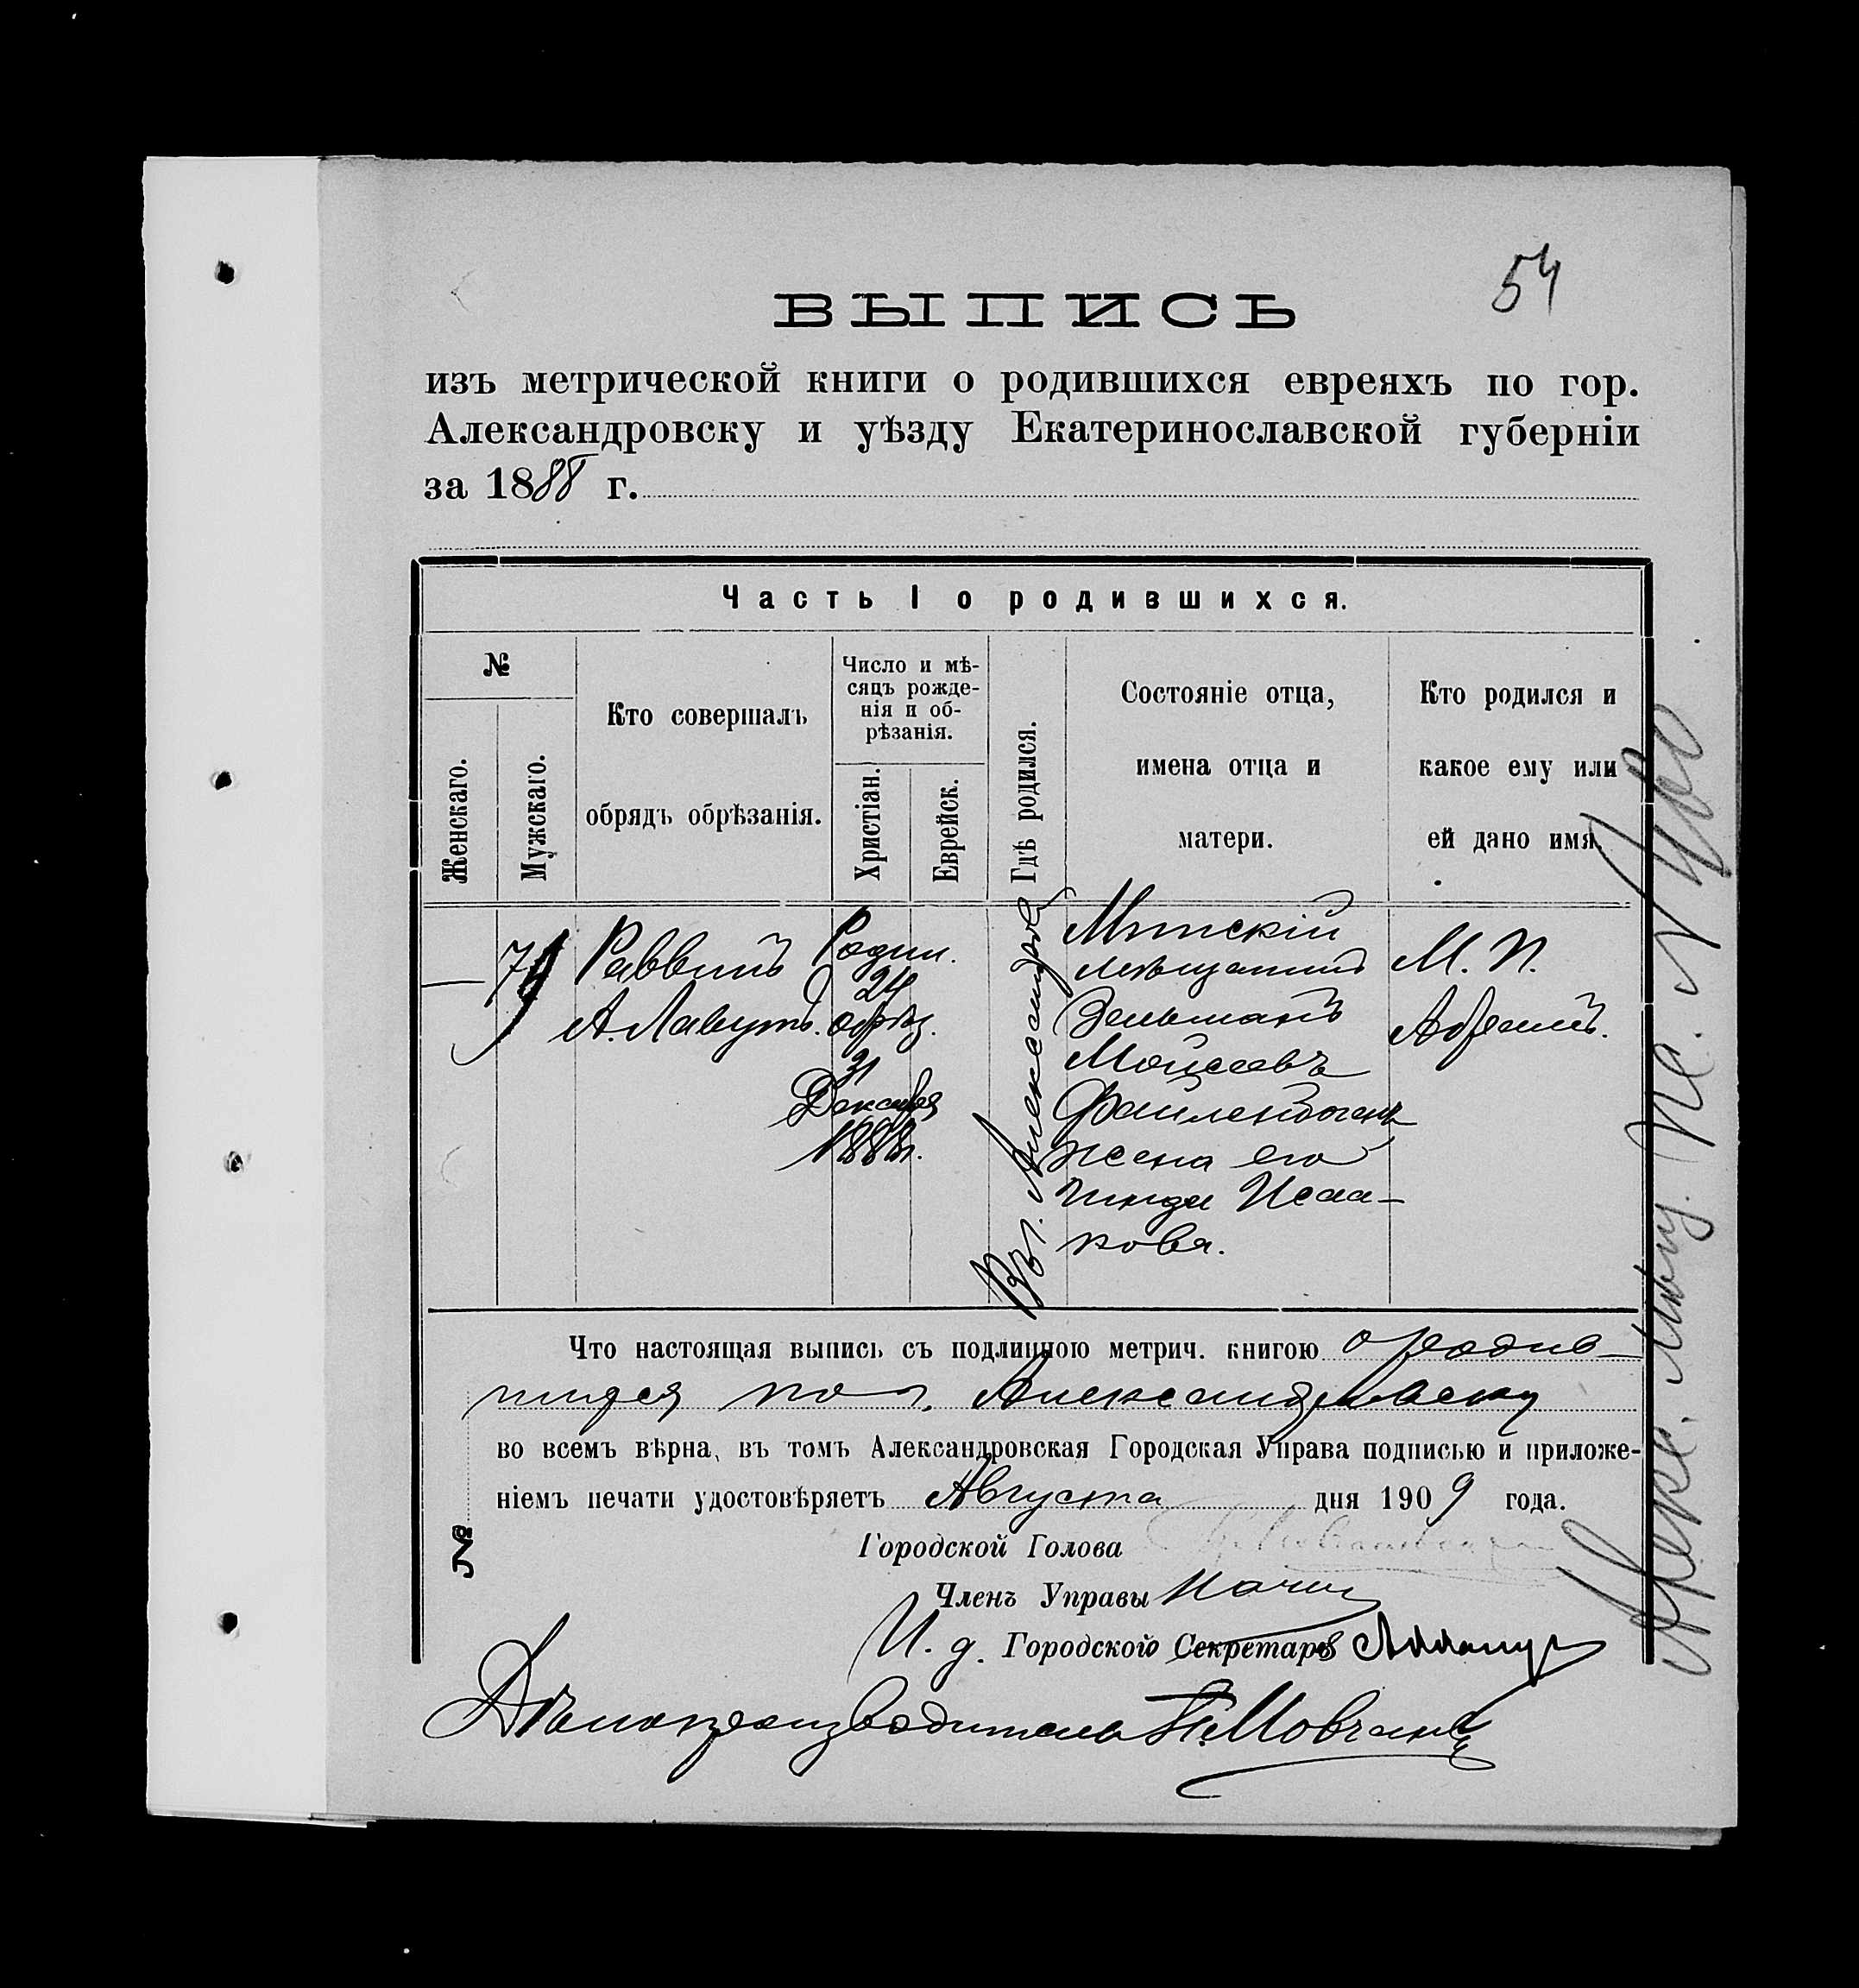 54
ВЫПИСЬ
изъ метрической книги о родившихся евреяхъ по гор.
Александровску и уѣзду Екатеринославской губерніи
за 1888 г.
Часть I о родившихся.
№
Женскаго.
Мужскаго.
Кто совершалъ
обрядъ обрѣзанія.
Число и мѣ-
сяцъ рожде-
нія и об-
рѣзанія.
Христіан.
Еврейск.
Гдѣ родился.
Состояніе отца,
имена отца и
матери.
Кто родился и
какое ему или
ей дано имя.
Раввинъ
А. Лавутъ.
Родил.
24
обрѣз.
31
Декабря
1888 г.
Въ г. Александров
мѣщанинъ
Зельманъ
Моисеевъ
жена его
Исаа-
кова.
М. П.
Абрамъ.
Что настоящая выпись съ подлинною метрич. книгою о родив-
шихся по г. Александровску
во всемъ вѣрна, въ томъ Александровская Городская Управа подписью и приложе-
ніемъ печати удостовѣряетъ Августа дня 1909 года.
№
Городской Голова
Членъ Управы
И. д. Городского Секретаря
Дѣлопроизводитель П. Мовчан
Алекс. Мѣщ.